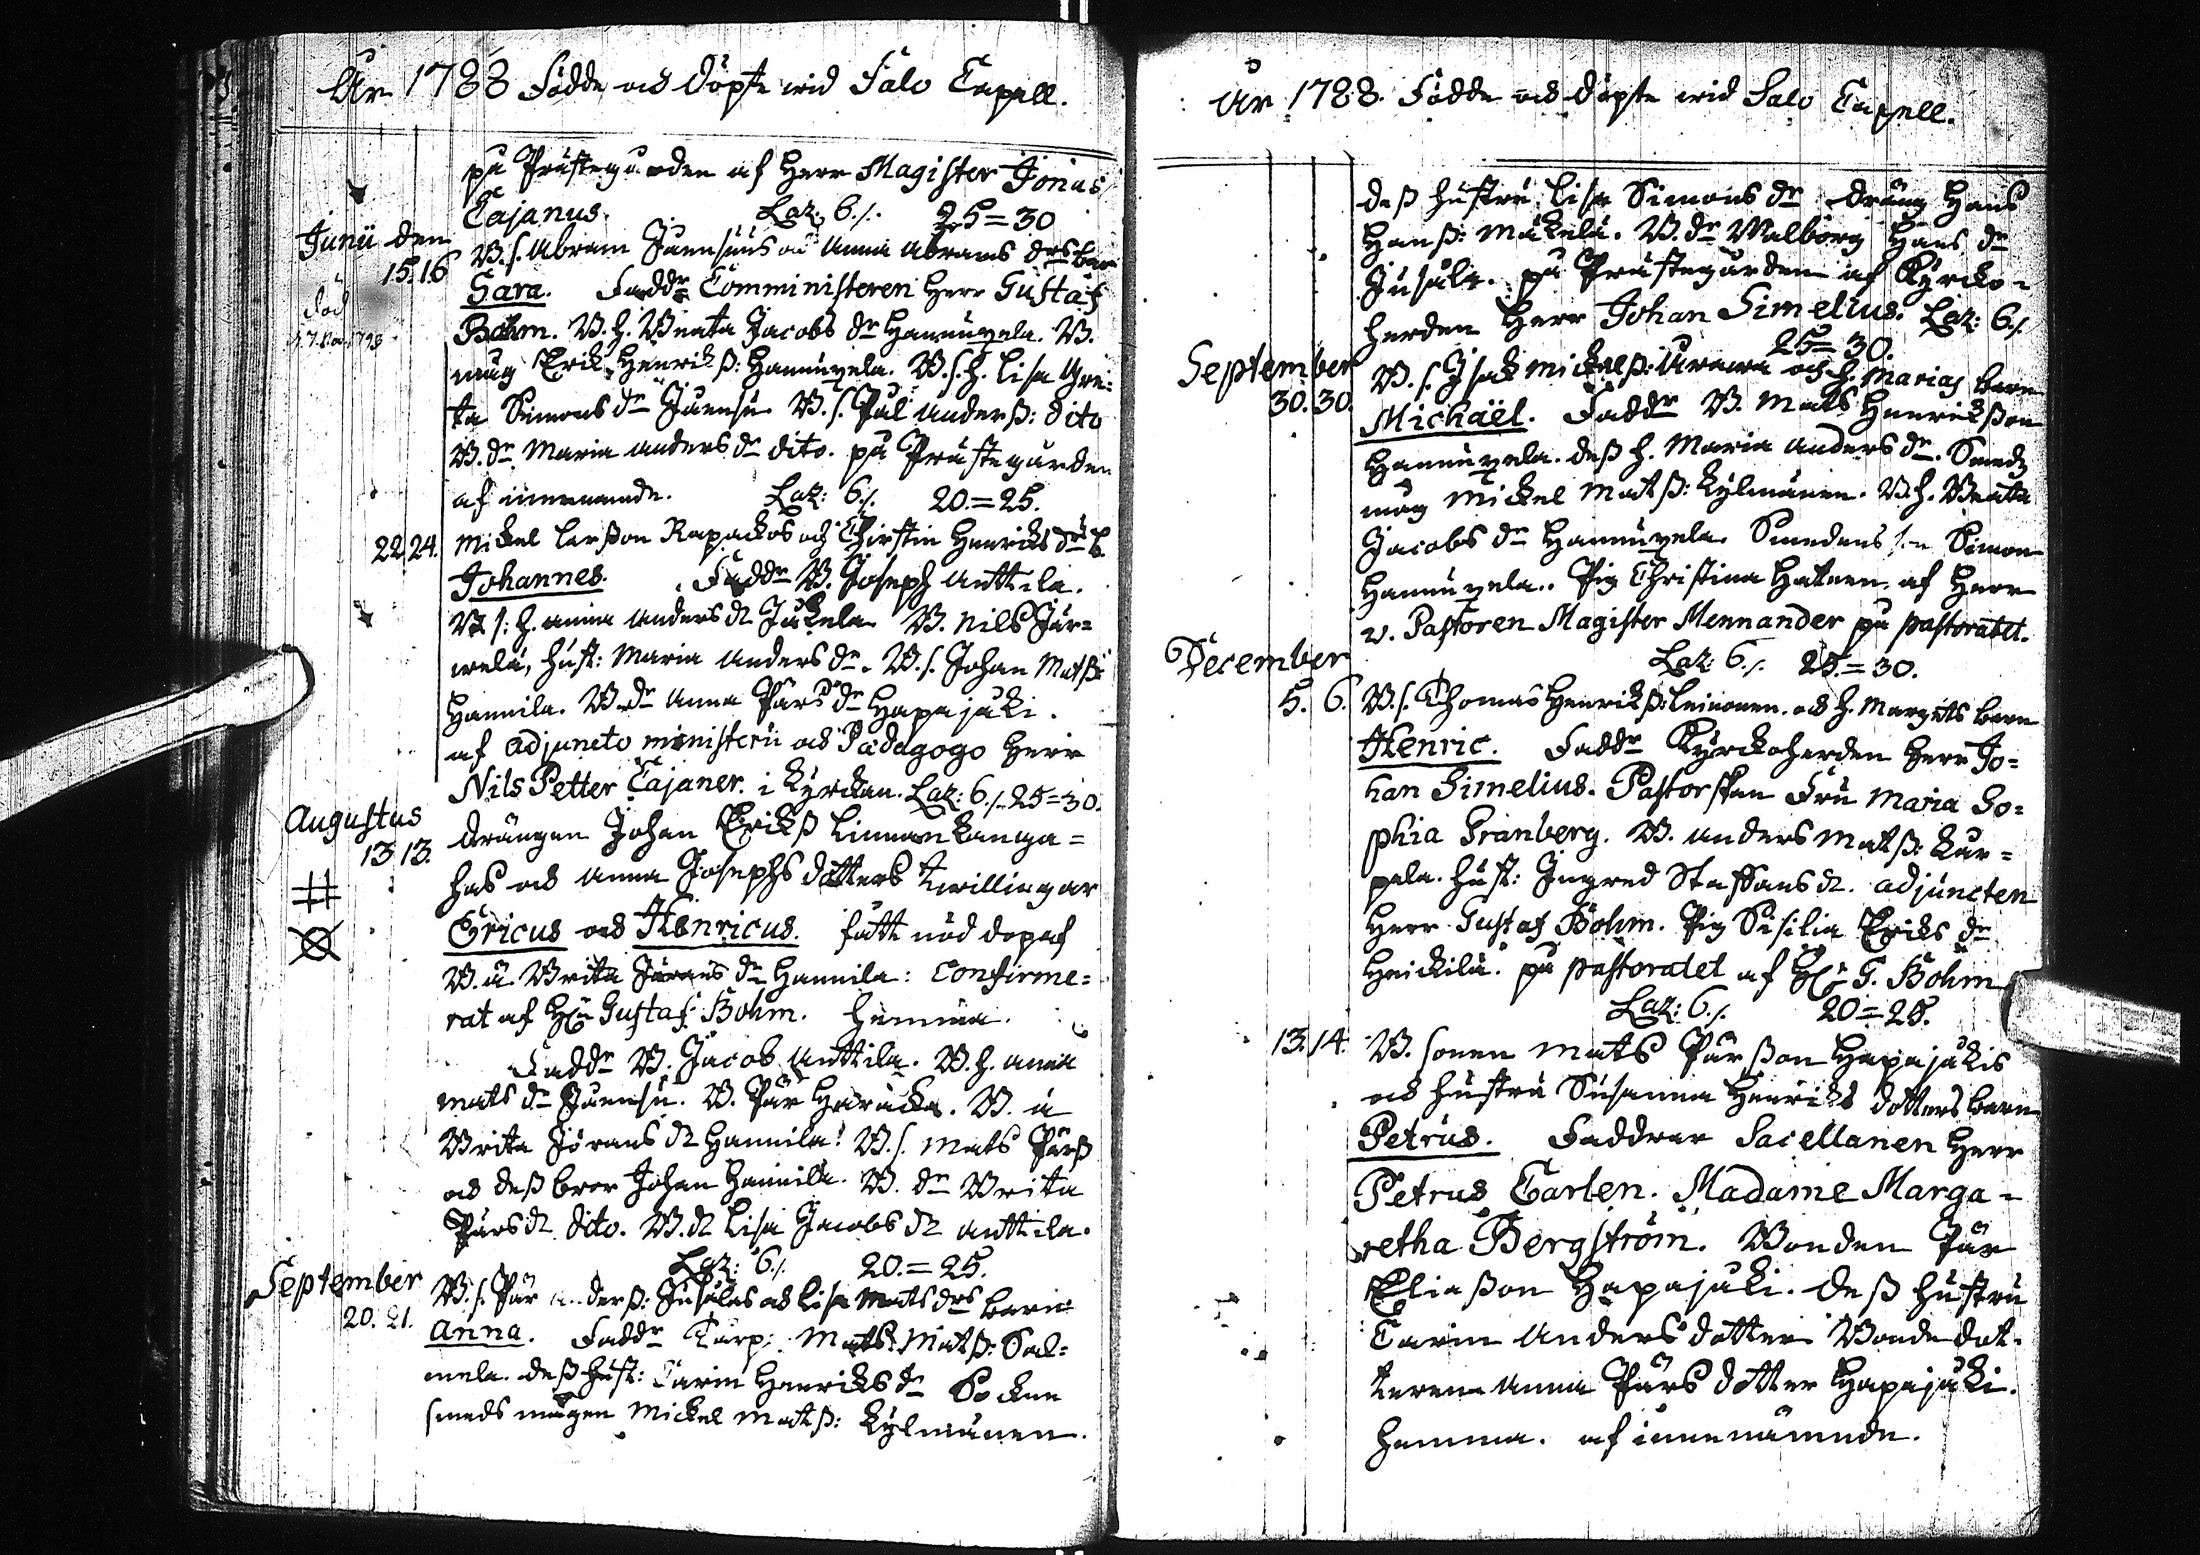 År 1788 Födde och döpte wid Salo Capell.
på Prästegården af Herr Magister Jonas
Cajanus. Laz: 6./. 25=30
Junii den
15. 16
B. s. Abram Juensuus och Anna Abrams drs barn
Sara. Faddr Comministeren Herr Gustaf
död
Böhm. B. h. Beata Jacobs dr Hannuxela. B.
måg Erik Henrikß: Hannuxela. B. s. h. Lisa Gre-
ta Simons dr Juensu. B. s. Pål Anderß: dito
B. dr Maria Anders dr dito. på Prästegården
af innenämnde. Laz: 6./. 20.=25.
22. 24. Mickel Larßon Rapackos och Christin Henriks drs b.
Johannes. Faddr B. Joseph Anttila.
B. s: h. Anna Anders dr Jukela B. Nils Jär-
welä, hust: Maria Anders dr. B. s. Johan Matß:
Hannila. B. dr Anna Pärs dr Hapajåki.
af adjuncto ministerii och Pædagogo Herr
Nils Petter Cajaner. i Kyrckan. Laz: 6./. 25=30.
Augustus
13. 13.
drängen Johan Erikß Linnankanga=
has och Anna Josephs dotters twillingar
Ericus och Henricus. fått nöd dop af
B. ä. Brita Jörans dr Hannila: Confirme=
rat af Hr Gustaf Böhm. hemma.
Faddr B. Jacob Anttila. B. h. Anna
Mats dr Juensu. B. Pär Haracka. B. ä
Brita Jörans dr Hannila. B. s. Mats Pärß
och deß bror Johan Hannila. B. dr Brita
Pärs dr dito. B. dr Lisa Jacobs dr Anttila.
Laz: 6./. 20.=25.
September
20. 21.
B. s. Pär Anderß: Jusulas och Lisa Mats drs barn
Anna. Faddr Torp: Mats Matß: Sal=
mela. deß hust: Carin Henriks dr Sockne
smeds mågen Mickel Matß: Kylmänen.
År 1788. Födde och döpte wid Salo Capell.
deß hustru Lisa Simons dr dräng Hans
Hanß: Mäkelä. B. dr Walborg Hans dr
Jusula. på Prästegården af Kyrcko-
herden Herr Johan Simelius. Laz: 6./.
25=30.
September
30. 30.
B. s. Isak Mickelß: och h. Marias barn
Michaël. Faddr B. Mats Henrikßon
Hannuxela. deß h. Maria Anders dr. Smedz
måg Mickel Matß: Kylmänen. B. h. Beata
Jacobs dr Hannuxela. Smedens son Simon
Hannuxela. Pig Christina af Herr
v. Pastoren Magister Mennander på pastoratet.
Laz: 6./. 25.=30.
December
5. 6. B. s. Thomas Henrikß: Leinonen. och h. Margets barn
Henric. Faddr Kyrckoherden Herr Jo=
han Simelius. Pastorskan Fru Maria So=
phia Granberg. B. Anders Matß: Kar=
pala. hust: Ingred Staffans dr. adjuncten
Herr Gustaf Böhm. Pig Sisilia Eriks dr
Heickilä. på pastoratet af Hr G. Böhm
Laz: 6./. 20=25.
13. 14. B. sonen Mats Pärßon Hapajåkis
och hustru Susanna Henriks dotters barn
Petrus. Faddrar Sacellanen Herr
Petrus Carlen. Madame Marga=
retha Bergström. Bonden Pär
Eliaßon Hapajåki. deß hustru
Carin Anders dotter Bonde dot-
teren Anna Pärs dotter Hapajåki.
hemma. af innenämnde.